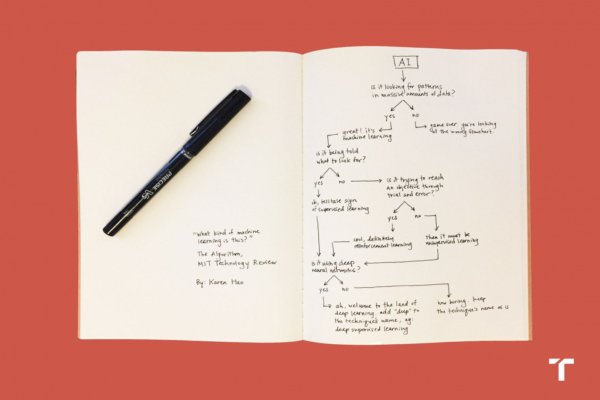 "What kind of machine
learning is this?"
The Algorithm,
MIT Technology Review
By: Karen Hao
PRECISE V5
AI
is it looking for patterns
in massive amounts of data?
yes
no
great! it's
machine learning
game over, you're looking
at the wrong flowchart.
is it being told
what to look for?
yes
no
is it trying to reach
an objective through
trial and error?
ah, telltale sign
of supervised learning
yes
no
cool, definitely
reinforcement learning
then it must be
unsupervised learning
is it using deep
neural networks?
yes
no
ah, welcome to the land of
deep learning. add "deep" to
the technique's name, eg:
deep supervised learning
how boring. keep
the technique's name as is